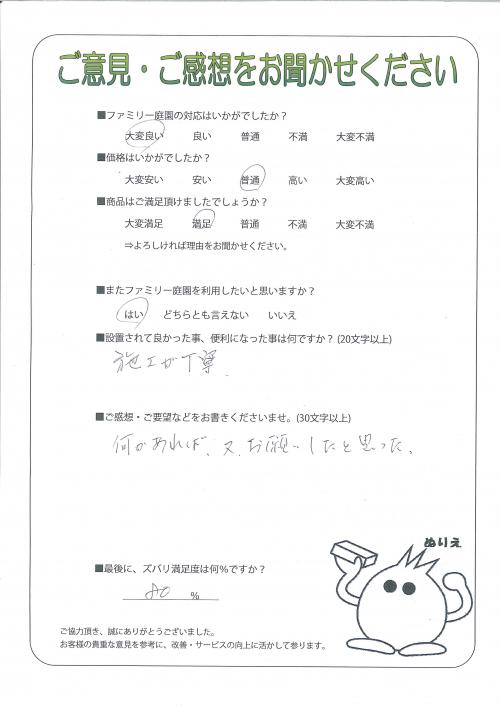 ご意見・ご感想をお聞かせください
■ファミリー庭園の対応はいかがでしたか？
大変良い 良い 普通 不満 大変不満
■価格はいかがでしたか？
大変安い 安い 普通 高い 大変高い
■商品はご満足頂けましたでしょうか？
大変満足 満足 普通 不満 大変不満
⇒よろしければ理由をお聞かせください。
■またファミリー庭園を利用したいと思いますか？
はい どちらとも言えない いいえ
■設置されて良かった事、便利になった事は何ですか？(20文字以上)
施工が丁寧.
■ご感想・ご要望などをお書きくださいませ。(30文字以上)
何かあれば、又、お願いしたと思った。
ぬりえ
■最後に、ズバリ満足度は何%ですか？
80 %
ご協力頂き、誠にありがとうございました。
お客様の貴重な意見を参考に、改善・サービスの向上に活かして参ります。